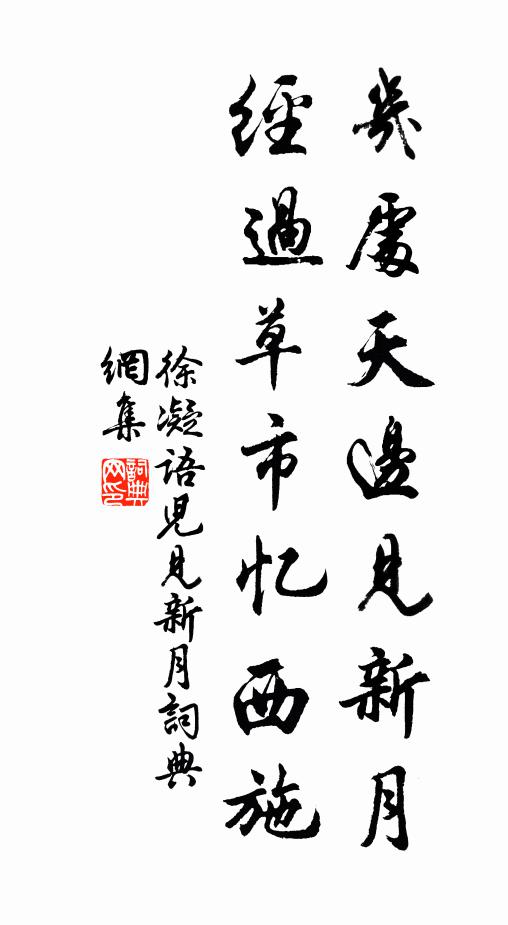 幾處天邊見新月
經過草市忆西施
徐凝語兒見新月詞典
網集
詞典
网印